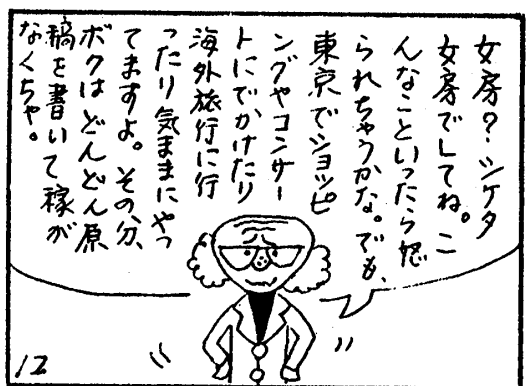 女房?シケタ
女房でしてね。こ
んなこといったら怒
られちゃうかな。でも、
東京でショッピ
ングやコンサー
トにでかけたり
海外旅行に行
ったり気ままにやっ
てますよ。その分、
ボクはどんどん原
稿を書いて稼が
なくちゃ。
12